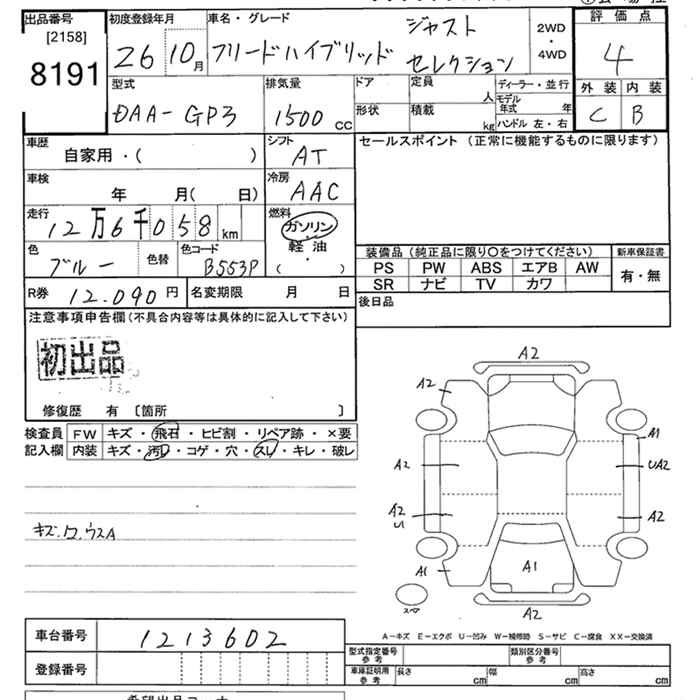 出品番号 初度登録年月 車名・グレード 評価点
[2158]
8191
26 10月 フリードハイブリッド ジャスト セレクション 2WD ・ 4WD 4
型式 排気量 ドア 定員 人 ディーラー・並行 外装 内装
DAA-GP3 1500 CC 形状 積載 kg モデル年式 年 ハンドル 左・右 C B
車歴 シフト セールスポイント (正常に機能するものに限ります)
自家用・( ) AT
車検 冷房
年 月( 日) AAC
走行 燃料
12万6千058 km ガソリン・軽油・( )
色 色替 色コード 装備品(純正品に限り○をつけてください) 新車保証書
ブルー B553P PS PW ABS エアB AW 有・無
SR ナビ TV カワ
R券 12.090円 名変期限 月 日 後日品
注意事項申告欄(不具合内容等は具体的に記入して下さい)
初出品
修復歴 有 〔箇所 〕
検査員 FW キズ・飛石・ヒビ割・リペア跡・×要
記入欄 内装 キズ・汚レ・コゲ・穴・スレ・キレ・破レ
A2
A2
A1
A2 UA2
A2 U A2
A1 A1
スペア
A2
A-キズ E-エクボ U-凹み W-補修跡 S-サビ C-腐食 XX-交換済
車台番号 1213602
型式指定番号 参考 類別区分番号 参考
登録番号 車庫証明用 参考 長さ cm 幅 cm 高さ cm